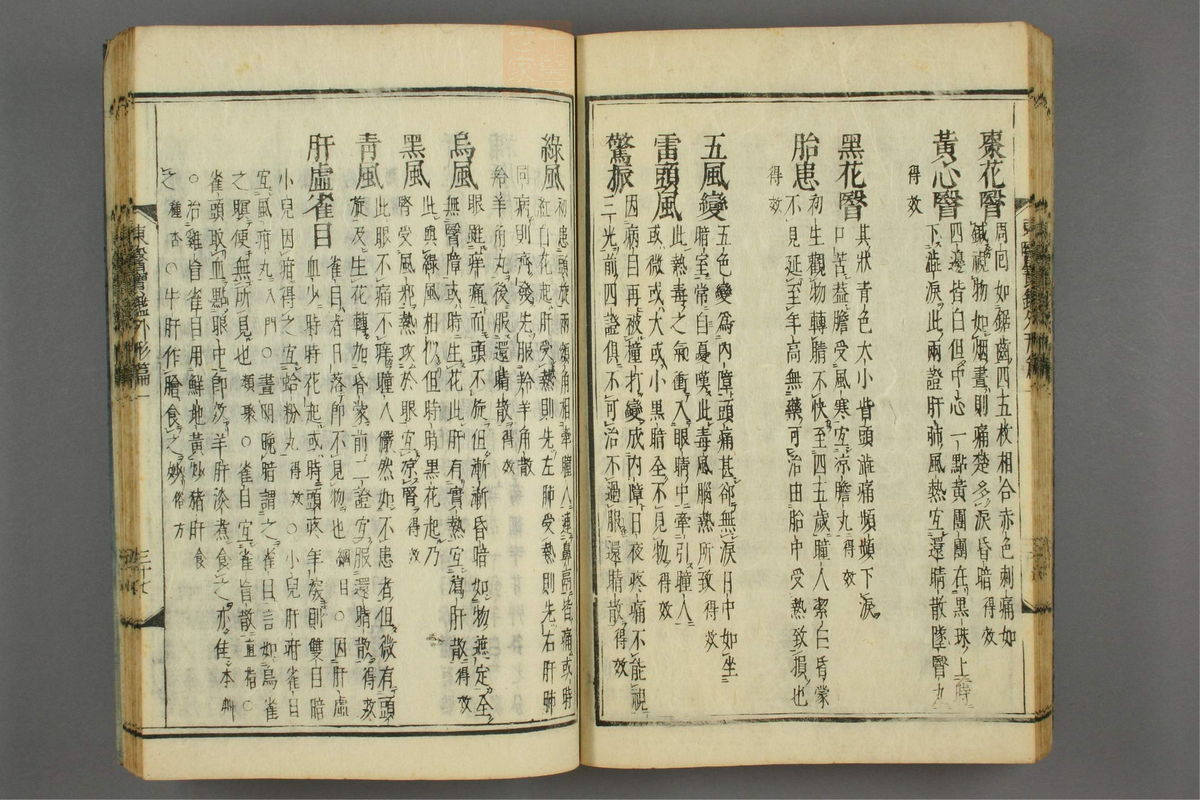 棗花瞖
周囘如鋸齒四五枚相合赤色刺痛如
鍼視物如烟晝則痛楚多淚昏暗得效
黃心瞖
四邊皆白但中心一點黃團團在黑珠上時
下澁淚此兩證肝肺風熱宜還睛散墜瞖丸
得效
黑花瞖
其狀青色大小眥頭澁痛頻頻下淚
口苦盖膽受風寒宜凉膽丸得效
胎患
初生觀物轉睛不快至四五歲瞳人潔白昏蒙
不見延至年高無藥可治由胎中受熱致損也
得效
五風變
五色變爲內障頭痛甚却無淚日中如坐
暗室常自憂嘆此毒風腦熱所致得效
雷頭風
此熱毒之氣衝入眼睛中牽引瞳人
或微或大或小黑暗全不見物得效
驚振
因病目再被撞打變成內障日夜疼痛不能視
三光前四證俱不可治不過服還睛散得效
綠風
初患頭旋兩額角相牽瞳人連鼻鬲皆痛或時
紅白花起肝受熱則先左肺受熱則先右肝肺
同病則齊發先服羚羊角散
後服還睛散得效
烏風
眼雖痒痛而頭不旋但漸漸昏暗如物遮定全
無瞖障或時生花此肝有實熱宜瀉肝散得效
黑風
此與綠風相似但時時黑花起乃
腎受風邪熱攻於眼宜凉腎得效
青風
此眼不痛不痒瞳人儼然如不患者但微有頭
旋及生花轉加昏蒙前二證宜服還睛散得效
肝虛雀目
雀目者日落卽不見物也綱目○因肝虛
血少時時花起或時頭疼年深則雙目暗
小兒因疳得之宜蛤粉丸得效○小兒肝疳雀目
宜風疳丸入門○晝明晚暗謂之雀目言如鳥雀
之暝便無所見也類聚○雀目宜雀盲散直指○
雀頭取血點眼中卽
羊肝淡煮食之亦佳本草
○治雞盲雀目用鮮地黃炒猪肝食
之種杏○牛肝作膾食之妙俗方
東醫寶鑑外形篇一
三十七